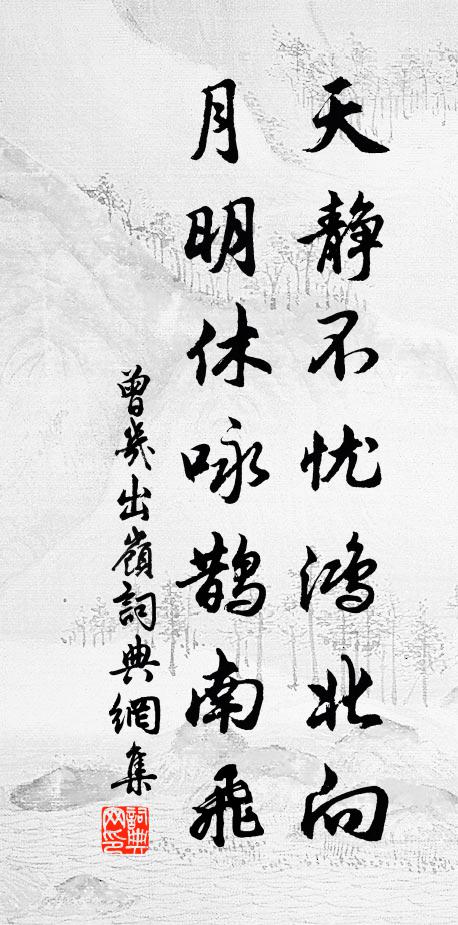 天静不忧鸿北向
月明休咏鹊南飞
曾幾出嶺詞典網集
詞典网印